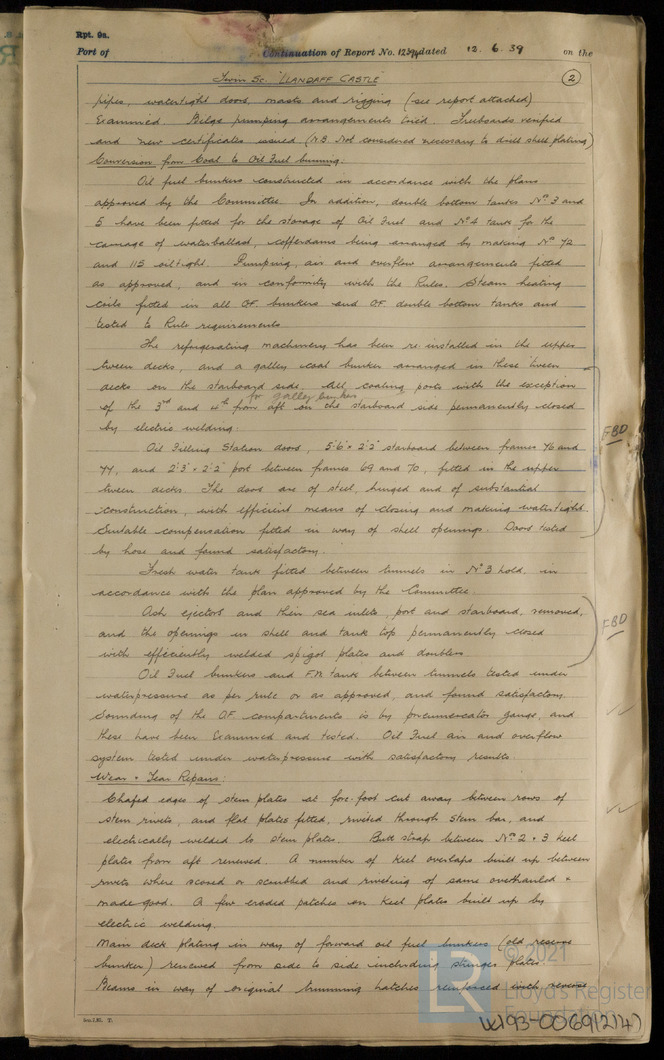 Rpt. 9a.
Port of Continuation of Report No. dated 12. 6. 39 on the
Twin Sc. "LLANDAFF CASTLE" 2
pipes, watertight doors, masts and rigging (see report attached)
Examined. Bilge pumping arrangements tried. Freeboards verified
and new certificates issued (N.B. Not considered necessary to drill shell plating)
Conversion from Coal to Oil Fuel burning:
Oil fuel bunkers constructed in accordance with the plans
approved by the Committee. In addition, double bottom tanks Nos 3 and
5 have been fitted for the storage of Oil Fuel and No 4 tank for the
carriage of waterballast, cofferdams being arranged by making Nos 72
and 115 oiltight. Pumping, air and overflow arrangements fitted
as approved, and in conformity with the Rules. Steam heating
coils fitted in all O.F. bunkers and O.F. double bottom tanks and
tested to Rule requirements
The refrigerating machinery has been re-installed in the upper
tween decks, and a galley coal bunker arranged in these tween
decks on the starboard side. All coaling ports with the exception
for galley bunker
of the 3rd and 4th from aft on the starboard side permanently closed
by electric welding.
FBD
Oil Filling Station doors, 5'6" × 2'2" starboard between frames 76 and
77, and 2'3" × 2'2" port between frames 69 and 70, fitted in the upper
tween decks. The doors are of steel, hinged and of substantial
construction, with efficient means of closing and making watertight.
Suitable compensation fitted in way of shell openings. Doors tested
by hose and found satisfactory.
Fresh water tank fitted between tunnels in No 3 hold, in
accordance with the plan approved by the Committee.
Ash ejectors and their sea inlets, port and starboard, removed,
FBD
and the openings in shell and tank top permanently closed
with efficiently welded spigot plates and doublers
Oil Fuel bunkers and F.W. tank between tunnels tested under
waterpressure as per rule or as approved, and found satisfactory.
Sounding of the O.F. compartments is by pneumercator gauge, and
these have been Examined and tested. Oil Fuel air and overflow
system tested under waterpressure with satisfactory results.
Wear & Tear Repairs:
Chafed edges of stem plates at fore-foot cut away between rows of
stem rivets, and flat plates fitted, riveted through stem bar, and
electrically welded to stem plates. Butt strap between Nos 2 & 3 keel
plates from aft renewed. A number of keel overlaps built up between
rivets where scored or scrubbed and riveting of same overhauled &
made good. A few eroded patches on keel plates built up by
electric welding.
Main deck plating in way of forward oil fuel bunkers (old reserve
bunker) renewed from side to side including stringer plates.
Beams in way of original trimming hatches reinforced with reverse
© 2021
LR
Lloyd's Register
Foundation
W193-0069(2/4)